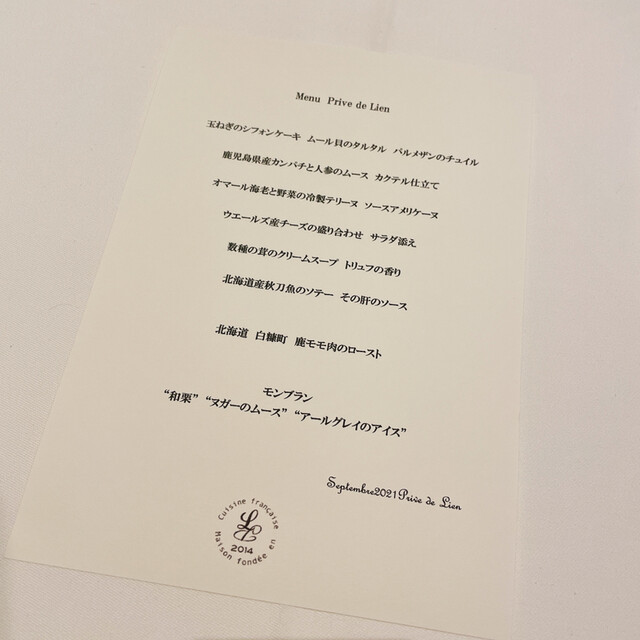 Menu Prive de Lien
玉ねぎのシフォンケーキ ムール貝のタルタル パルメザンのチュイル
鹿児島県産カンパチと人参のムース カクテル仕立て
オマール海老と野菜の冷製テリーヌ ソースアメリケーヌ
ウエールズ産チーズの盛り合わせ サラダ添え
数種の茸のクリームスープ トリュフの香り
北海道産秋刀魚のソテー その肝のソース
北海道 白糠町 鹿モモ肉のロースト
モンブラン
“和栗” “ヌガーのムース” “アールグレイのアイス”
Septembre2021Prive de Lien
Cuisine française
L
2014
Maison fondée en